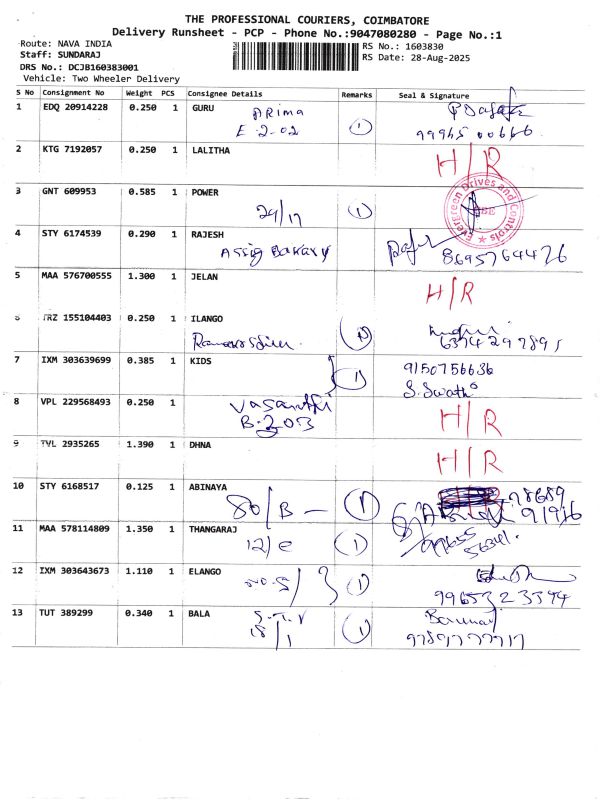 THE PROFESSIONAL COURIERS, COIMBATORE
Delivery Runsheet - PCP - Phone No.:9047080280 - Page No.:1
Route: NAVA INDIA
RS No.: 1603830
Staff: SUNDARAJ
RS Date: 28-Aug-2025
DRS No.: DCJB160383001
Vehicle: Two Wheeler Delivery
S No Consignment No Weight PCS Consignee Details Remarks Seal & Signature
1 EDQ 20914228 0.250 1 GURU
Arima
E-2-02 1
99965 00666
2 KTG 7192057 0.250 1 LALITHA
H/R
3 GNT 609953 0.585 1 POWER
24/17 1
Evergreen Drives and Controls
CBE
4 STY 6174539 0.290 1 RAJESH
Bakary 8695764426
5 MAA 576700555 1.300 1 JELAN
H/R
6 TRZ 155104403 0.250 1 ILANGO
7 IXM 303639699 0.385 1 KIDS
1 9150756636
S. Swathi
8 VPL 229568493 0.250 1
Vasanthi
B-203
H/R
9 TVL 2935265 1.390 1 DHNA
H/R
10 STY 6168517 0.125 1 ABINAYA
80/B - 1
98689
91916
11 MAA 578114809 1.350 1 THANGARAJ
12/e 1
12 IXM 303643673 1.110 1 ELANGO
No.5/3 1
9965323594
13 TUT 389299 0.340 1 BALA
S.T.V
18/1 1
9789777717